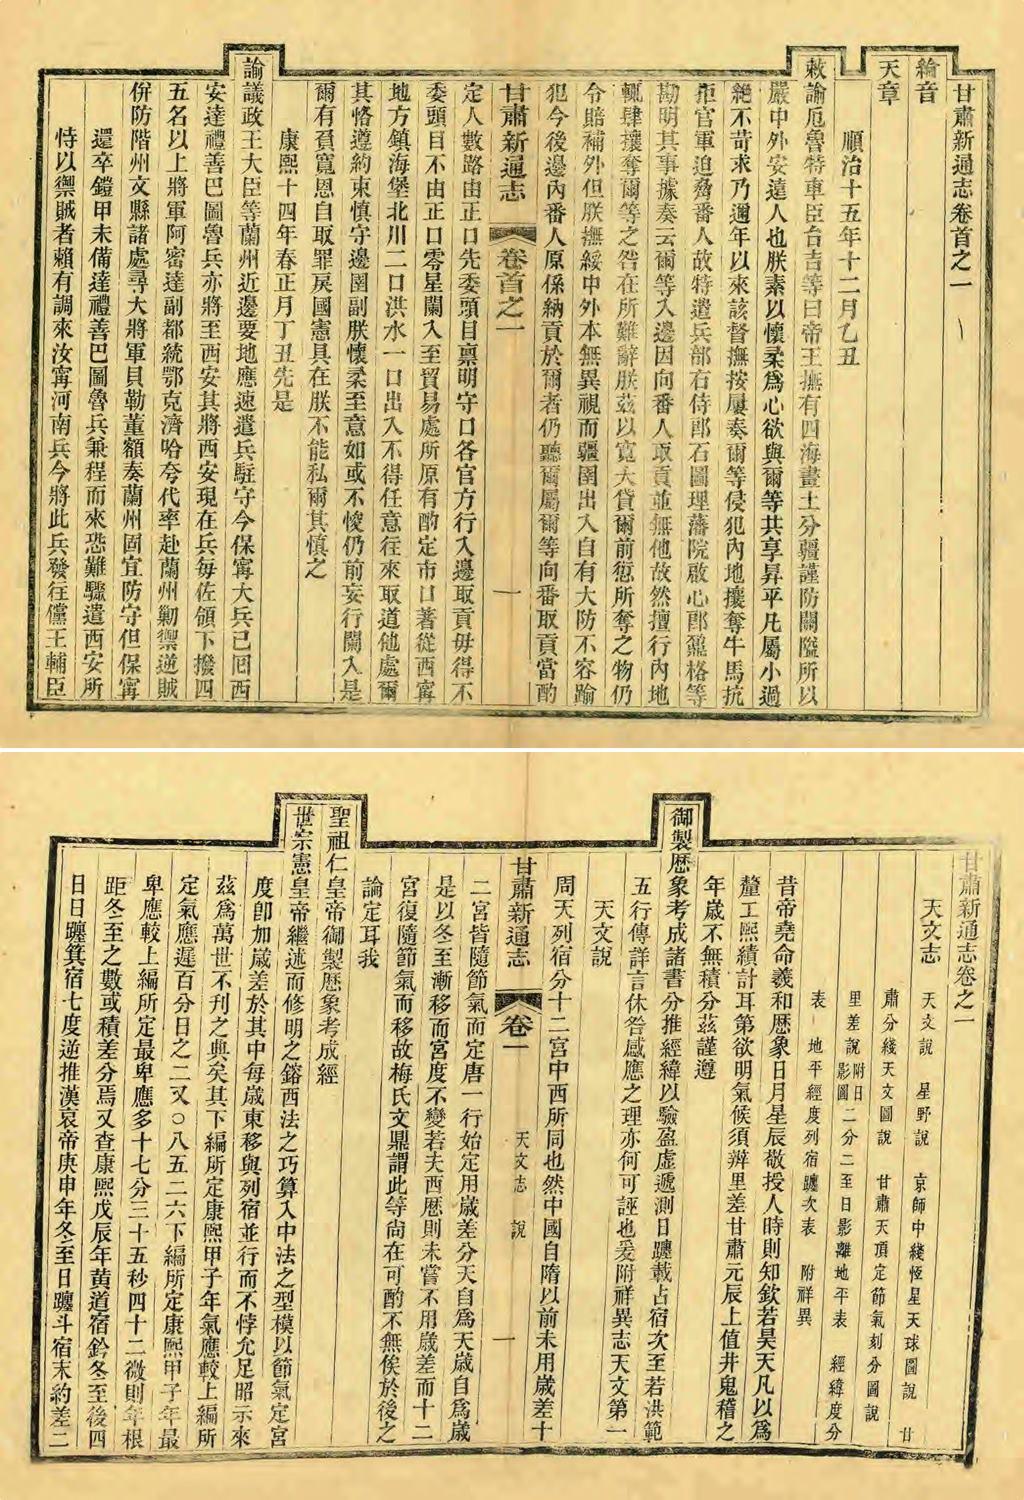 甘肅新通志卷首之一
綸音
天章
順治十五年十二月乙丑
敕諭厄魯特車臣台吉等曰帝王撫有四海畫土分疆謹防關隘所以
嚴中外安遠人也朕素以懷柔爲心欲與爾等共享昇平凡屬小過
絕不苛求乃邇年以來該督撫按屢奏爾等侵犯內地攘奪牛馬抗
拒官軍迫脅番人故特遣兵部右侍郎石圖理藩院啟心郎鼐格等
勘明其事據奏云爾等入邊因向番人取貢並無他故然擅行內地
輒肆攘奪爾等之咎在所難辭朕茲以寬大貸爾前愆所奪之物仍
令賠補外但朕撫綏中外本無異視而疆圉出入自有大防不容踰
犯今後邊內番人原係納貢於爾者仍聽爾屬爾等向番取貢當酌
甘肅新通志
卷首之一
一
定人數路由正口先委頭目稟明守口各官方行入邊取貢毋得不
委頭目不由正口零星闌入至貿易處所原有酌定市口著從西寧
地方鎮海堡北川二口洪水一口出入不得任意往來取道他處爾
其恪遵約束慎守邊圉副朕懷柔至意如或不悛仍前妄行闌入是
爾有負寬恩自取罪戾國憲具在朕不能私爾其慎之
康熙十四年春正月丁丑先是
諭議政王大臣等蘭州近邊要地應速遣兵駐守今保寧大兵已回西
安達禮善巴圖魯兵亦將至西安其將西安現在兵每佐領下撥四
五名以上將軍阿密達副都統鄂克濟哈夸代率赴蘭州勦禦逆賊
併防階州文縣諸處尋大將軍貝勒董額奏蘭州固宜防守但保寧
還卒鎧甲未備達禮善巴圖魯兵兼程而來恐難驟遣西安所
恃以禦賊者賴有調來汝寧河南兵今將此兵發往儻王輔臣
甘肅新通志卷之一
天文志
天文說 星野說 京師中綫恆星天球圖說 甘
肅分綫天文圖說 甘肅天頂定節氣刻分圖說
里差說附日影圖 二分二至日影離地平表 經緯度分
表 地平經度列宿躔次表 附祥異
昔帝堯命羲和歷象日月星辰敬授人時則知欽若昊天凡以爲
釐工熙績計耳第欲明氣候須辨里差甘肅元辰上值井鬼稽之
年歲不無積分茲謹遵
御製歷象考成諸書分推經緯以驗盈虛遞測日躔載占宿次至若洪範
五行傳詳言休咎感應之理亦何可誣也爰附祥異志天文第一
天文說
周天列宿分十二宮中西所同也然中國自隋以前未用歲差十
甘肅新通志
卷一
天文志 說
一
二宮皆隨節氣而定唐一行始定用歲差分天自爲天歲自爲歲
是以冬至漸移而宮度不變若夫西歷則未嘗不用歲差而十二
宮復隨節氣而移故梅氏文鼎謂此等尚在可酌不無俟於後之
論定耳我
聖祖仁皇帝御製歷象考成經
世宗憲皇帝繼述而修明之鎔西法之巧算入中法之型模以節氣定宮
度卽加歲差於其中每歲東移與列宿並行而不悖允足昭示來
茲爲萬世不刊之典矣其下編所定康熙甲子年氣應較上編所
定氣應遲百分日之二又〇八五二六下編所定康熙甲子年最
卑應較上編所定最卑應多十七分三十五秒四十二微則年根
距冬至之數或積差分焉又查康熙戊辰年黃道宿鈐冬至後四
日日躔箕宿七度逆推漢哀帝庚申年冬至日躔斗宿末約差二